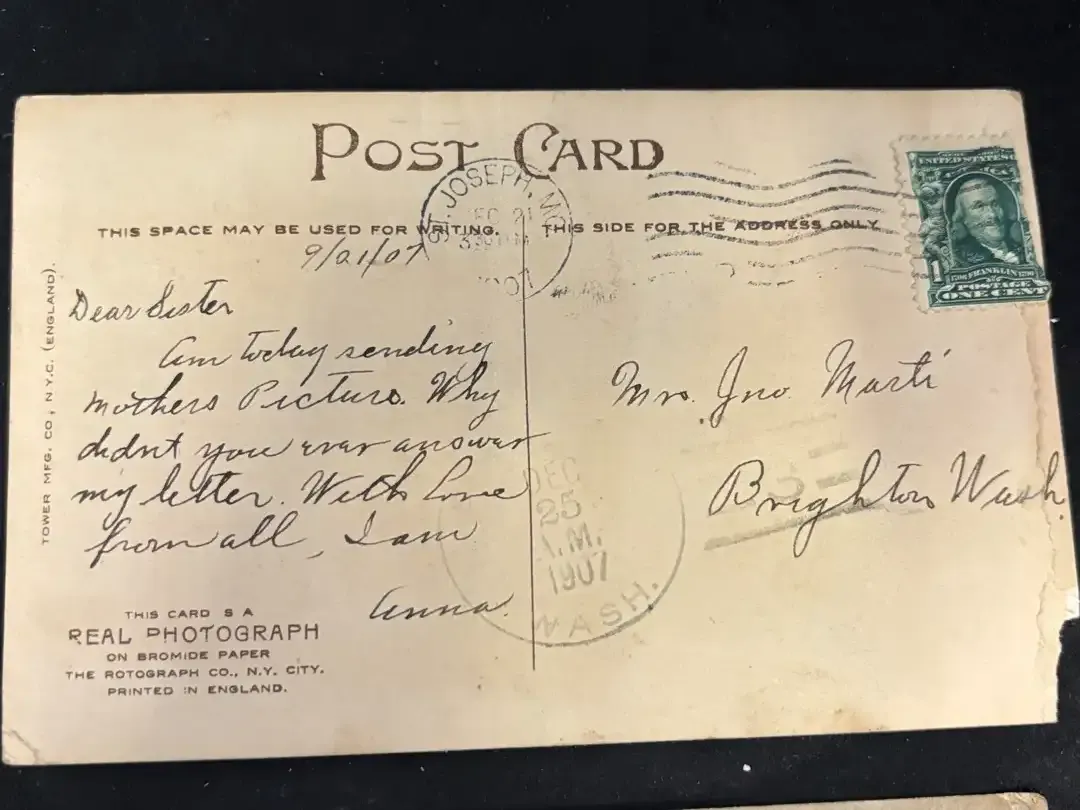 POST CARD
ST. JOSEPH, MO.
DEC 21
1907
UNITED STATES
AMERICA
1
1706 FRANKLIN 1790
POSTAGE
ONE CENT
THIS SPACE MAY BE USED FOR WRITING.
THIS SIDE FOR THE ADDRESS ONLY
TOWER MFG. CO., N.Y.C. (ENGLAND).
Dear Sister
Am today sending
mothers Picture. Why
didnt you ever answer
my letter. With Love
from all, I am
Anna.
Mrs. Jno. Marti
Brighton Wash.
DEC
25
A.M.
1907
WASH.
THIS CARD S A
REAL PHOTOGRAPH
ON BROMIDE PAPER
THE ROTOGRAPH CO., N.Y. CITY.
PRINTED IN ENGLAND.